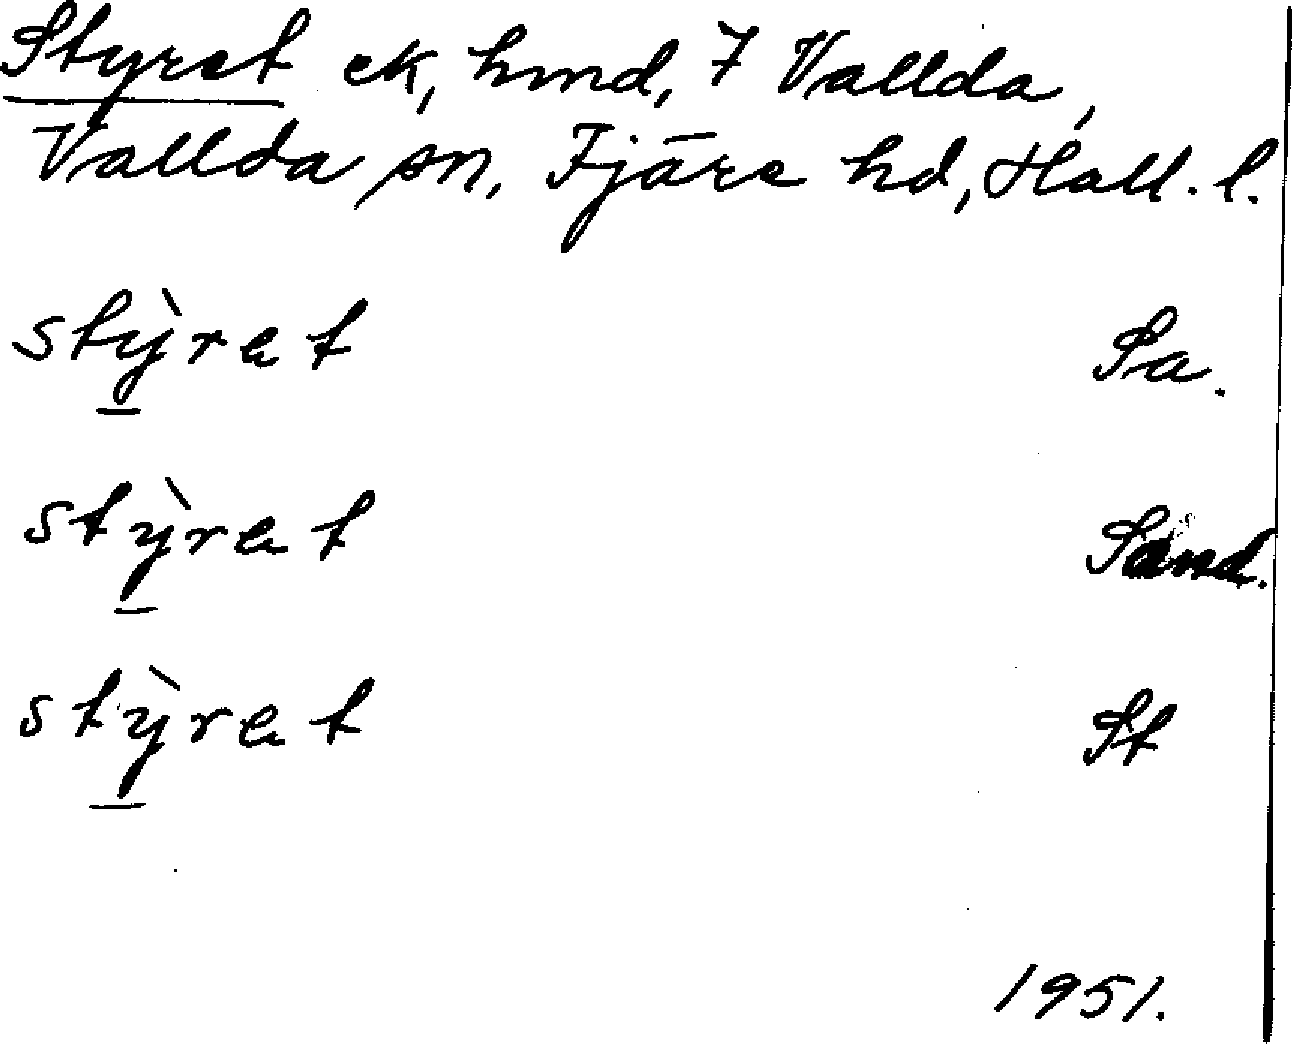 Styret ek, hmd, 7 Vallda,
Vallda sn, Fjäre hd, Hall. l.
stỳret Sa.
stỳret Sand.
stỳret St
1951.